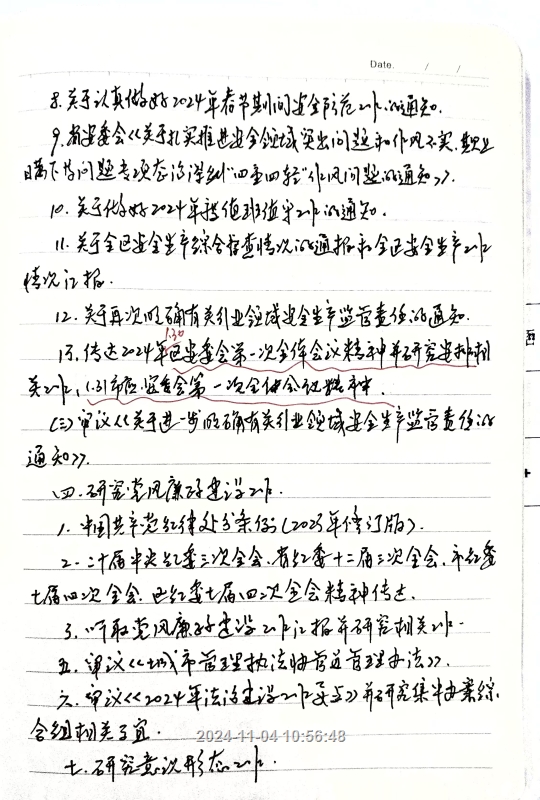 Date.    /    /
8.关于认真做好2024年春节期间安全防范工作的通知.
9.省安委会《关于扎实推进安全领域突出问题和作风不实、
瞒下等问题专项态治深纠"四重四轻"作风问题的通知》.
10.关于做好2024年 值班值守工作的通知.
11.关于全区安全生产综合督查情况的通报和全区安全生产工作
情况汇报.
12.关于再次明确有关行业领域安全生产监管责任的通知.
1.30
13.传达2024年区安委会第一次全体会议精神并研究安排相
关工作,1.31市安委会第一次全体会议精神.
(三)审议《关于进一步明确有关行业领域安全生产监管责任的
通知》.
四.研究党风廉政建设工作.
1.中国共产党纪律处分条例(2023年修订版).
2.二十届中央纪委三次全会、省纪委十二届三次全会、市纪委
七届四次全会、区纪委七届四次全会精神传达.
3.听取党风廉政建设工作汇报并研究相关工作.
五.审议《城市管理执法协管员管理办法》.
六.审议《2024年法治建设工作要点》并研究集中办案综
合组相关事宜.
2024-11-04 10:56:48
七.研究意识形态工作.